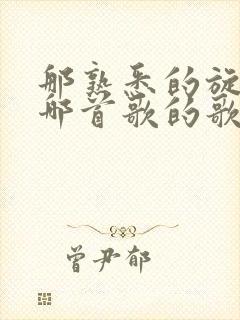 那熟悉的旋
那首歌的歌
曾尹郁